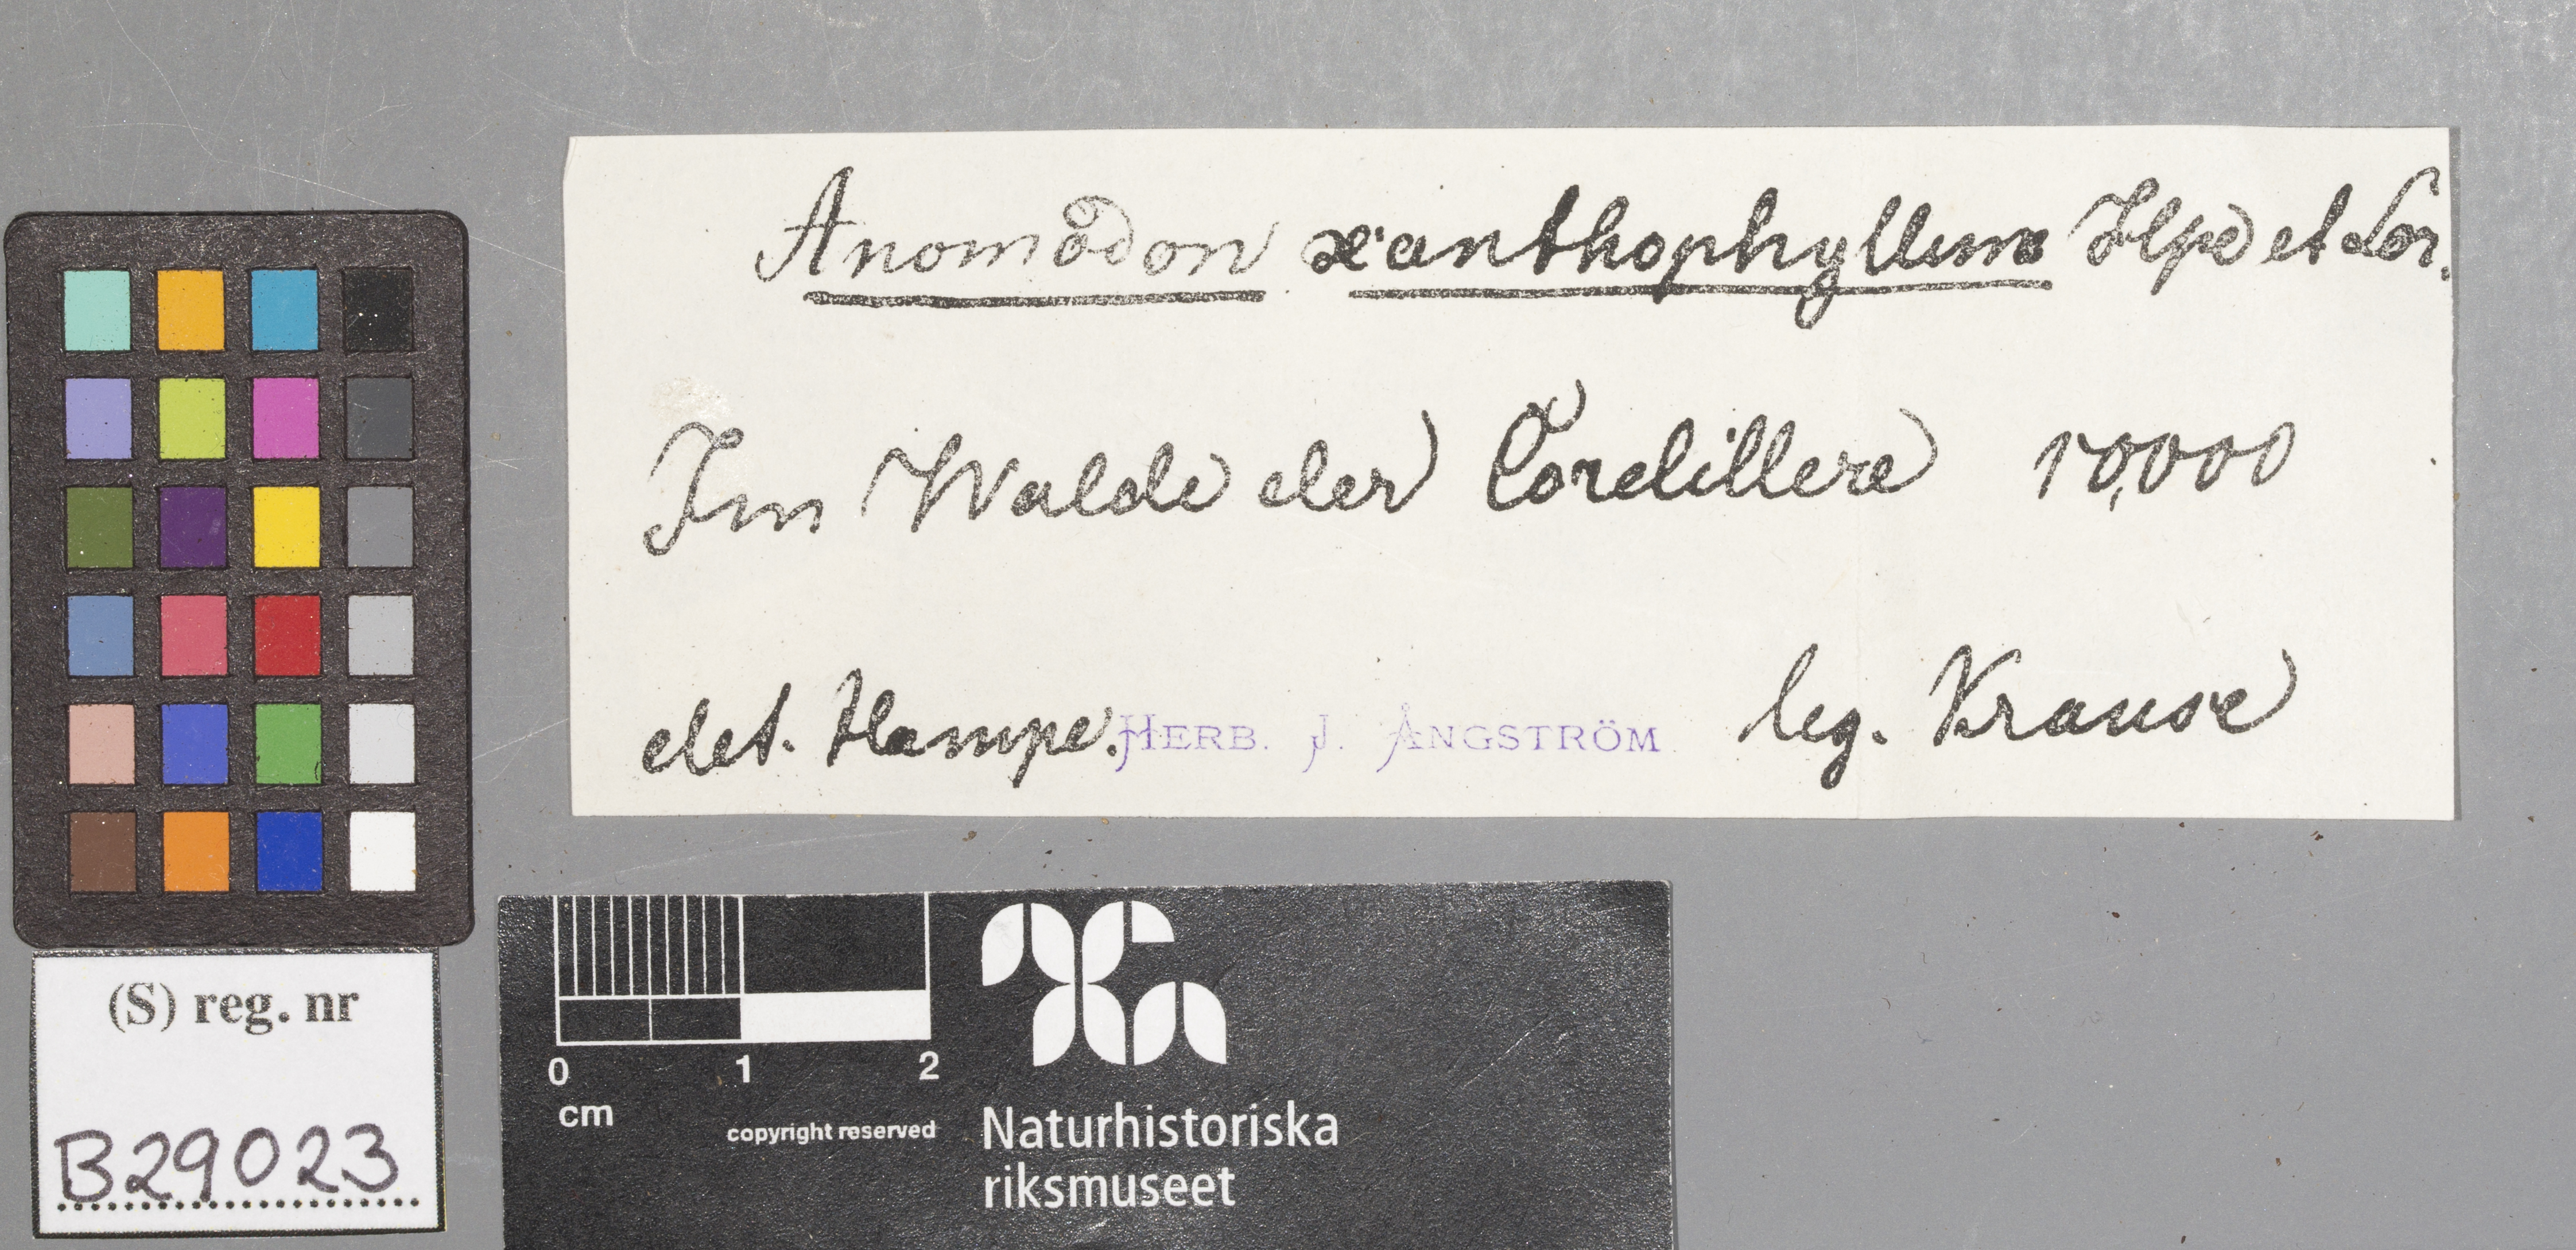 Anomodon xanthophyllum Hpe et Lor.
Im Walde der Cordillere 10,000
det. Hampe. HERB. J. ÅNGSTRÖM leg. Krause
(S) reg. nr
B29023
0 1 2
cm
copyright reserved
Naturhistoriska
riksmuseet